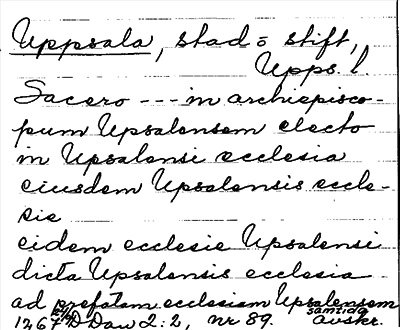 Uppsala, stad o stift,
Upps. l.
Sacero --- in archiepisco-
pum Upsalensem electo
in Upsalensi ecclesia
eiusdem Upsalensis eccle-
sie
eidem ecclesie Upsalensi
dicta Upsalensis ecclesia
ad prefatam ecclesiam Upsalensem
1267 D Daw 2:2, nr 89. samtida avskr.